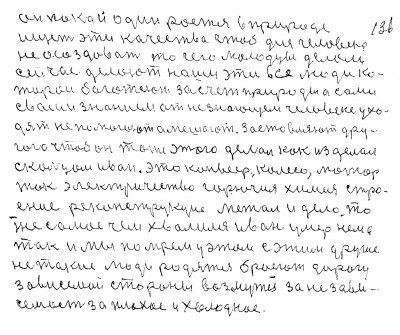 он покай один роется в природе 136
ищет эти качества чтоб для человека
не опаздоват то чего молодым делом
сейчас делают наши эти все люди ко-
торои богатеют за счет природы а сами
своим знанием от незнающем человеке ухо-
дят не помогают а мешают. Заставляют дру-
гого чтоб он тоже этого делал как и зделал
скотцом иван. Это конвеер, колесо, мотор
ток электричество горючия химия стро-
ение реконструкцие метал и дело то
же самое чем хвалимя иван умер нема
так и мы помрем у этом с этим другие
не такие люди родятся бросют дорогу
зависемой стороны возмутся за незави-
семость за плохое и холодное.